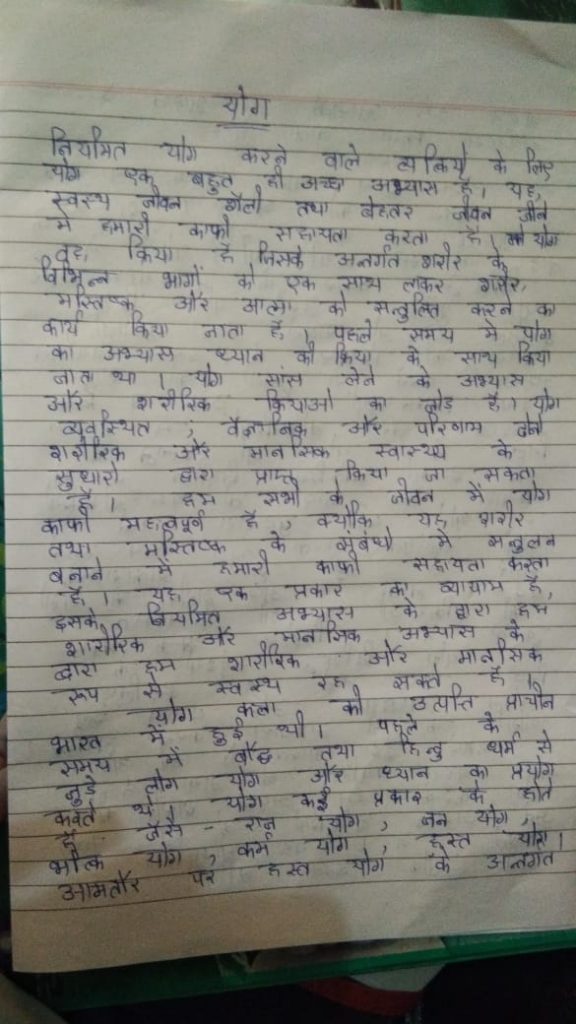 योग
नियमित योग करने वाले व्यक्तियो के लिए
योग एक बहुत ही अच्छा अभ्यास है। यह,
स्वस्थ जीवन शैली तथा बेहतर जीवन जीने
में हमारी काफी सहायता करता है। योग
वह क्रिया है जिसके अन्तर्गत शरीर के
विभिन्न भागों को एक साथ लाकर शरीर,
मस्तिष्क और आत्मा को सन्तुलित करने का
कार्य किया जाता है। पहले समय मे योग
का अभ्यास ध्यान की क्रिया के साथ किया
जाता था। योग सांस लेने के अभ्यास
और शारीरिक क्रियाओ का जोड़ है। योग
व्यवस्थित, वैज्ञानिक और परिणाम दोनो
शारीरिक और मानसिक स्वास्थ्य के
सुधारो द्वारा प्राप्त किया जा सकता
है। हम सभी के जीवन में योग
काफी महत्वपूर्ण है, क्योंकि यह शरीर
तथा मस्तिष्क के संबंधो में सन्तुलन
बनाने में हमारी काफी सहायता करता
है। यह एक प्रकार का व्यायाम है,
इसके नियमित अभ्यास के द्वारा हम
शारीरिक और मानसिक अभ्यास के
द्वारा हम शारीरिक और मानसिक
रूप से स्वस्थ रह सकते है।
योग कला की उत्पत्ति प्राचीन
भारत में हुई थी। पहले के
समय में बौद्ध तथा हिन्दु धर्म से
जुडे लोग योग और ध्यान का प्रयोग
करते थे। योग कई प्रकार के होते
है जैसे - राज योग, जन योग,
भक्ति योग, कर्म योग, हस्त योग।
आमतौर पर हस्त योग के अन्तर्गत